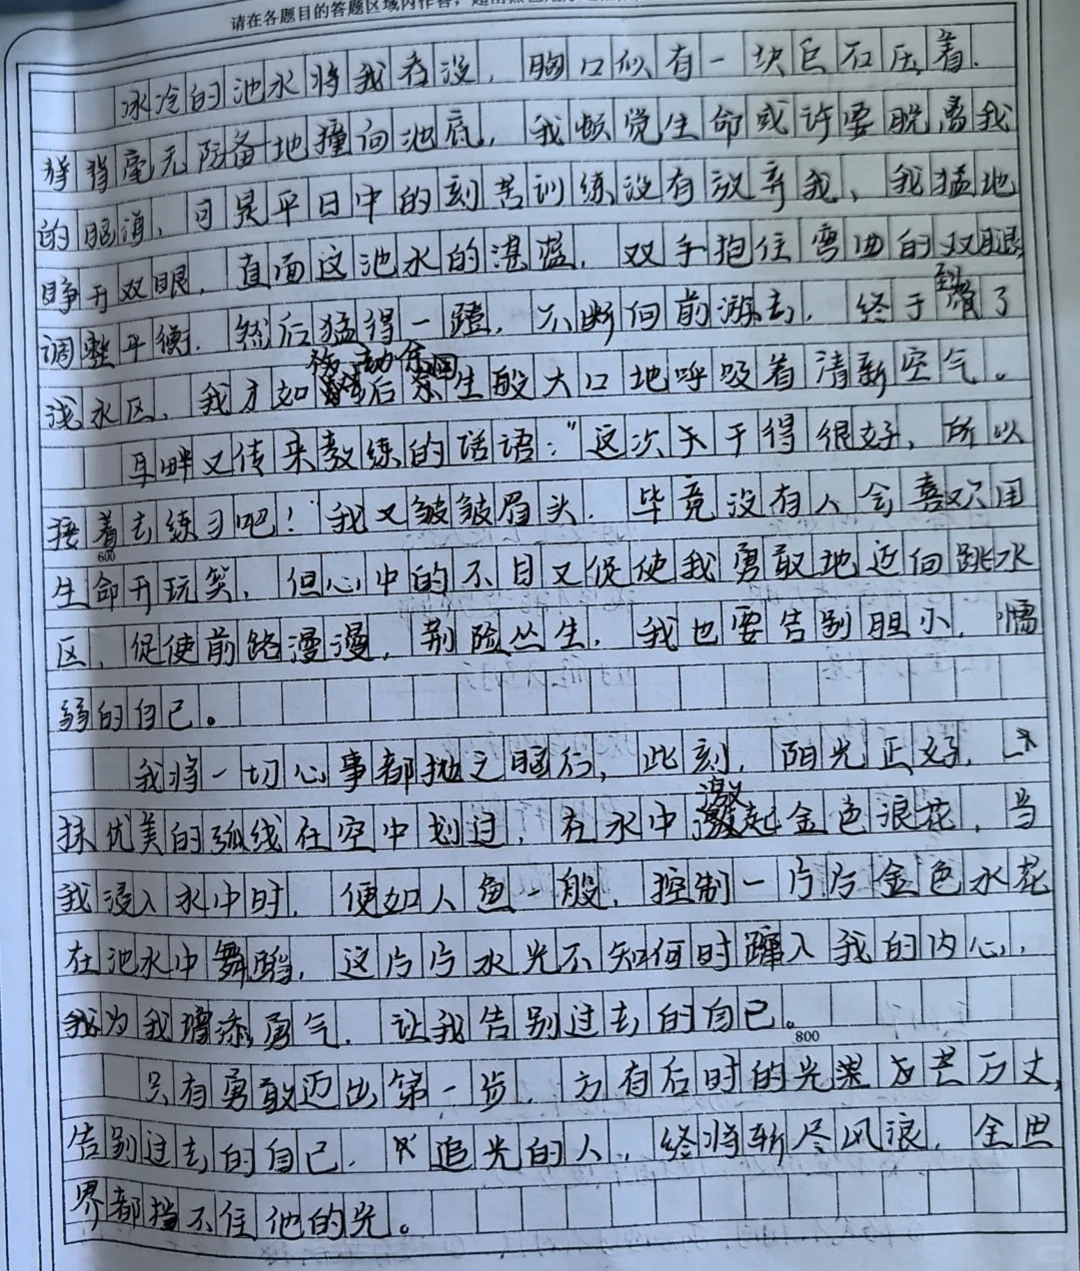 请在各题目的答题区域内作答，超出黑色
冰冷的池水将我吞没，胸口似有一块巨石压着.
脊背毫无防备地撞向池底，我顿觉生命或许要脱离我
的脑海、可是平日中的刻苦训练没有放弃我、我猛地
睁开双眼，直面这池水的湛蓝．双手抱住弯曲的双腿
调整平衡．然后猛得一蹬，不断向前游去，终于到了
浅水区，我才如劫后余生般大口地呼吸着清新空气。
耳畔又传来教练的话语："这次关于得很好，所以
接着去练习吧！"我又皱皱眉头．毕竟没有人会喜欢用
600
生命开玩笑，但心中的不甘又促使我勇敢地迈向跳水
区，促使前路漫漫，荆险丛生，我也要告别胆小，懦
弱的自己。
我将一切心事都抛之脑后，此刻，阳光正好，一
抹优美的弧线在空中划过，在水中激起金色浪花，当
我浸入水中时，便如人鱼一般，控制一片片金色水花
在池水中舞蹈，这片片水光不知何时蹿入我的内心，
为我增添勇气．让我告别过去的自己。
800
只有勇敢迈出第一步，方有后时的光芒万丈，
告别过去的自己．追光的人，终将斩尽风浪，全世
界都挡不住他的光。